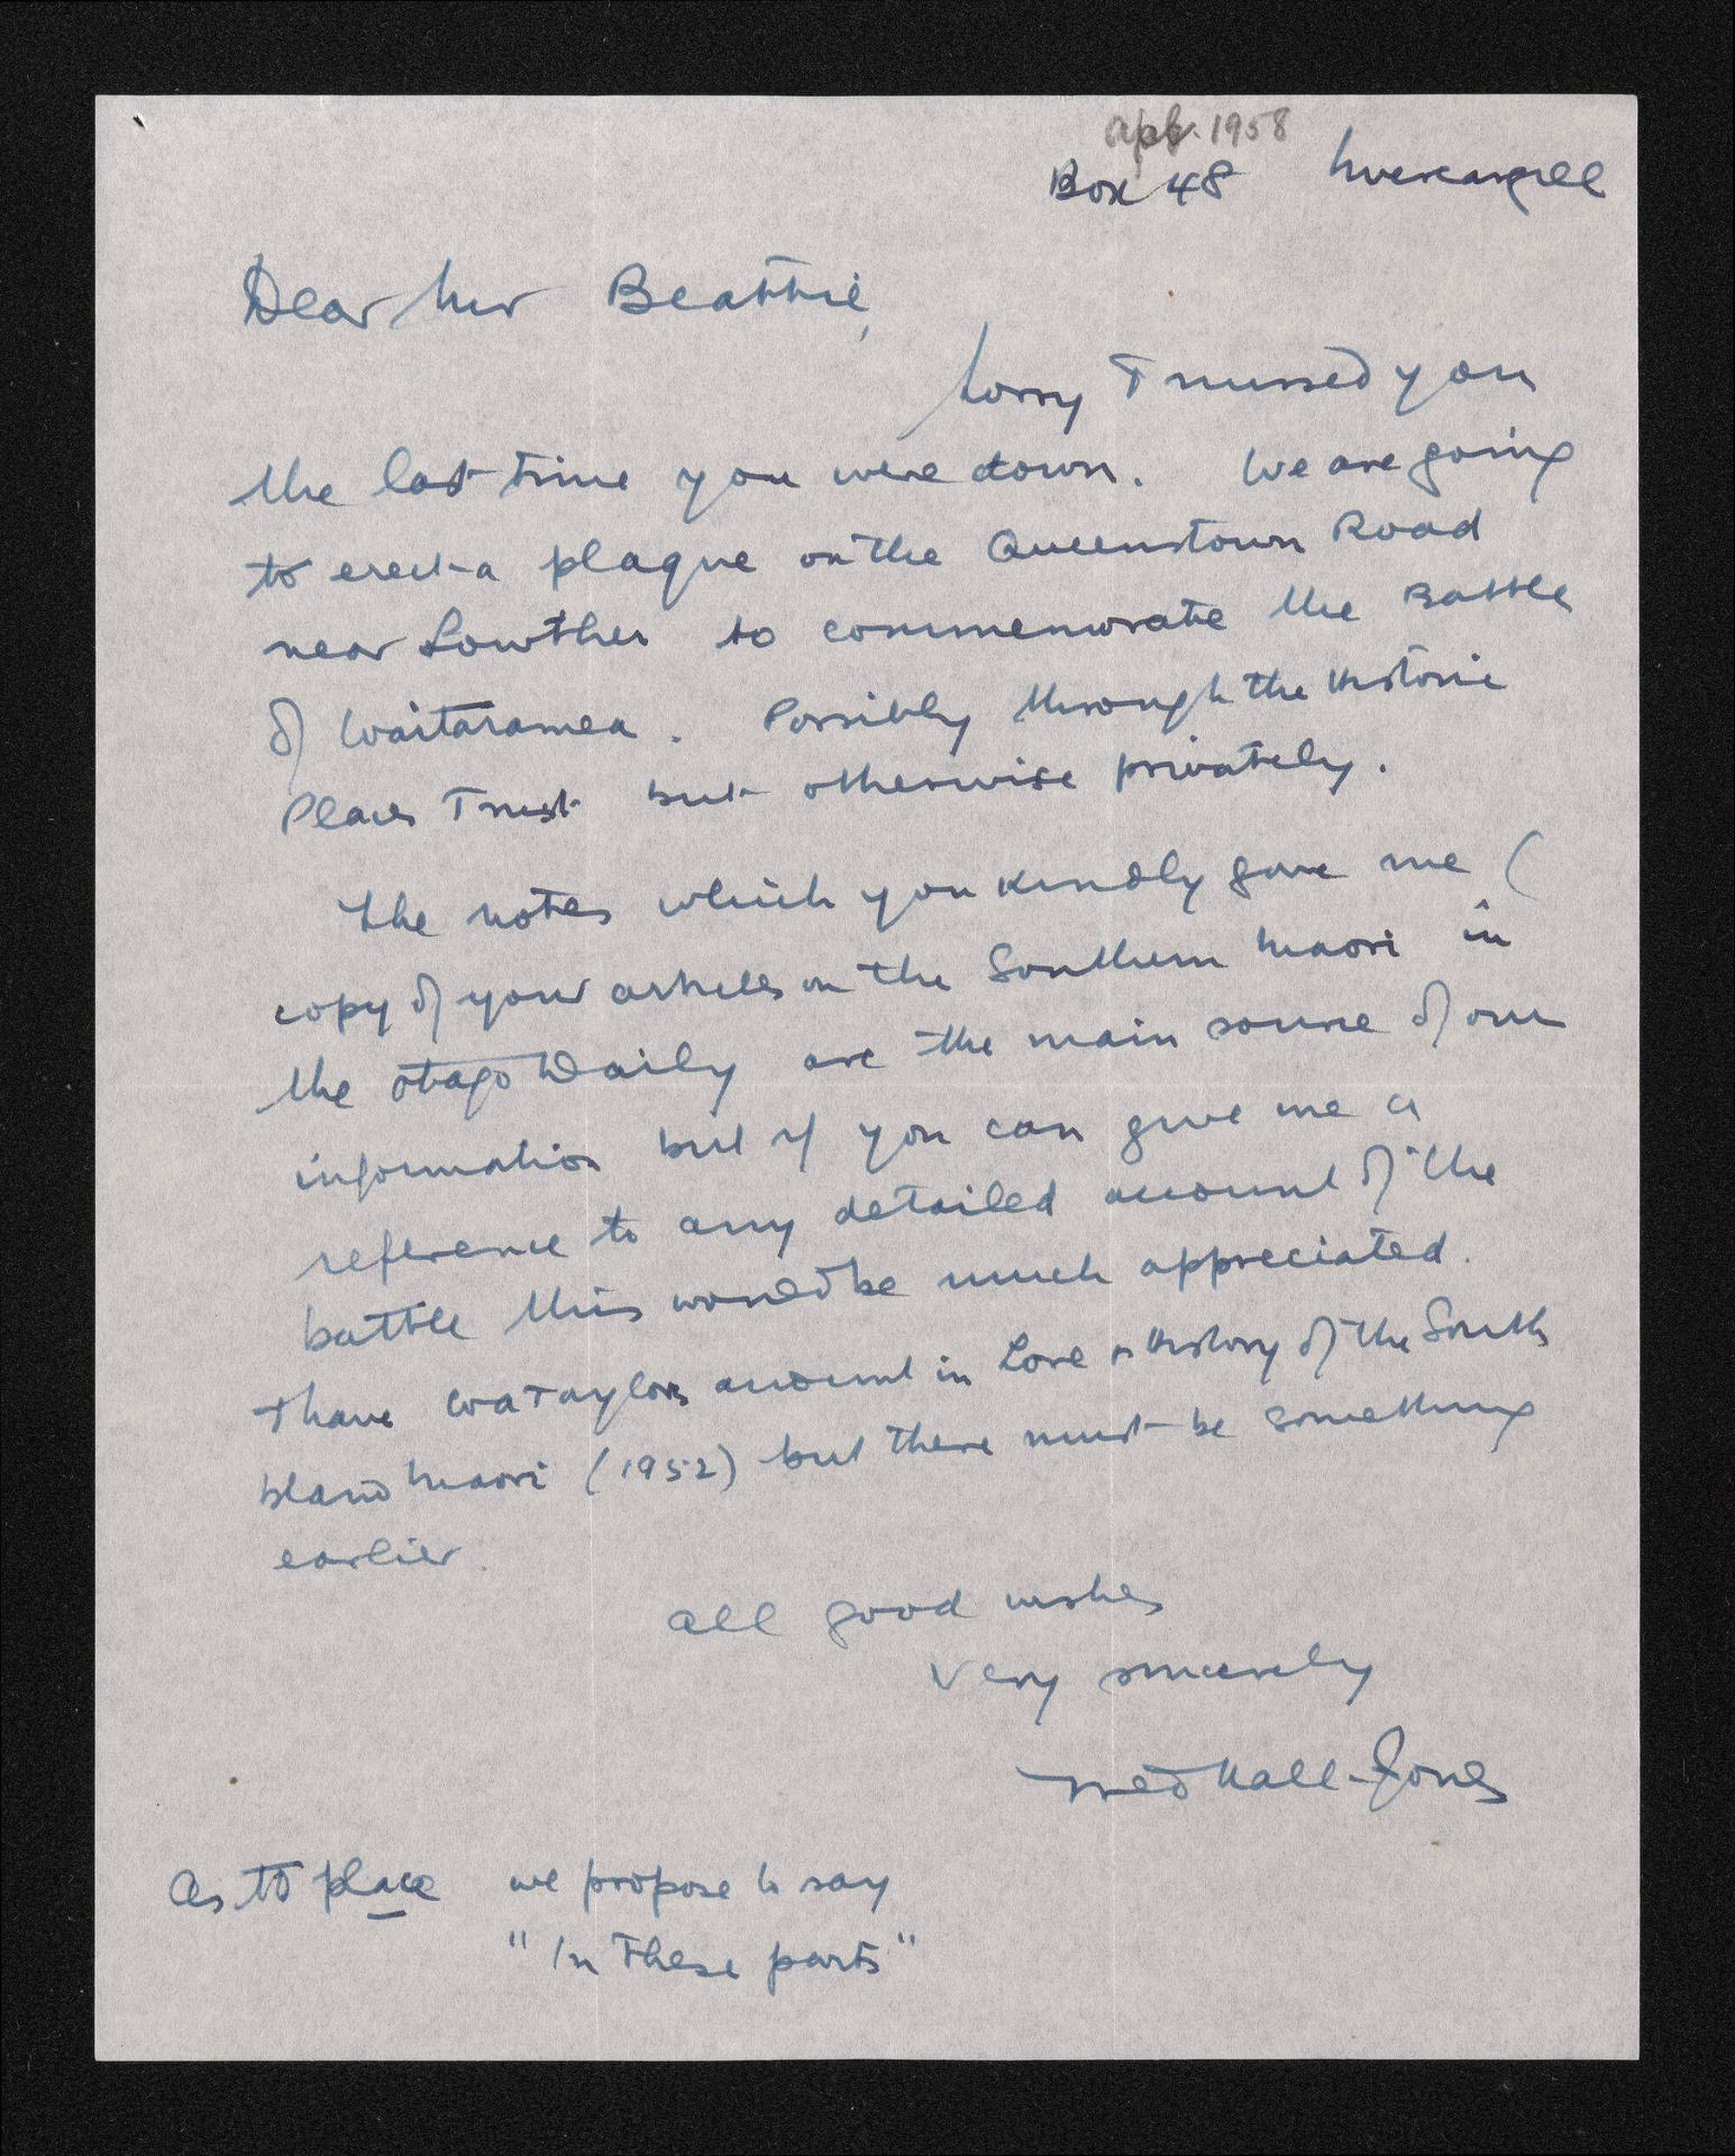 Apl. 1958
Box 48 Invercargill
Dear Mr Beattie,
Sorry I missed you
the last time you were down. We are going
to erect a plaque on the Queenstown Road
near Lowther to commemorate the Battle
of Waitaramea. Possibly through the Historic
Places Trust but otherwise privately.
The notes which you kindly gave me (
copy of your articles on the Southern Maori in
the Otago Daily are the main source of our
information but if you can give me a
reference to any detailed account of the
battle this would be much appreciated.
I have W A Taylors account in Lore & History of the South
Island Maori (1952) but there must be something
earlier.
All good wishes
Very sincerely
Hall-Jones
As to place we propose to say
"In these parts"